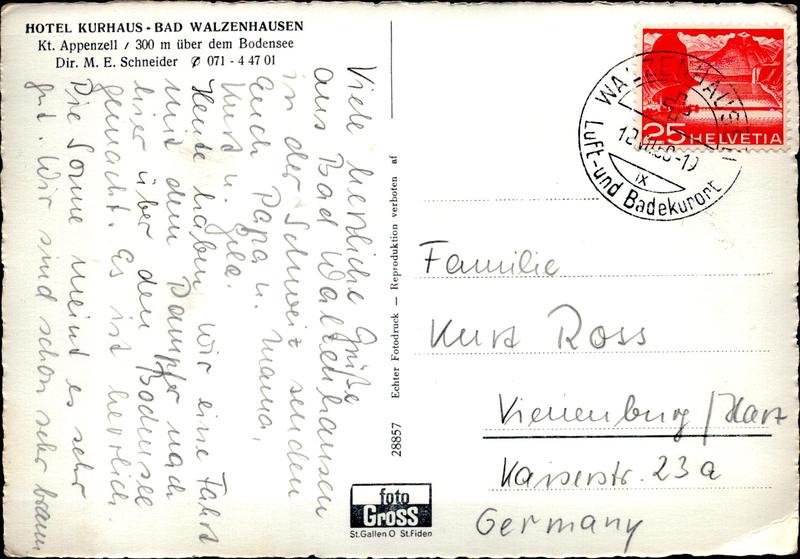 HOTEL KURHAUS - BAD WALZENHAUSEN
Kt. Appenzell / 300 m über dem Bodensee
Dir. M. E. Schneider ✆ 071 - 4 47 01
Viele herzliche Grüße
aus Bad Walzenhausen
in der Schweiz senden
Euch Papa u. Mama,
u. Gila.
Heute haben wir eine Fahrt
mit dem Dampfer nach
hier über den Bodensee
gemacht. Es ist herrlich.
Die Sonne meint es sehr
gut. Wir sind schon sehr braun
28857 Echter Fotodruck — Reproduktion verboten af
foto
Gross
St.Gallen O St.Fiden
WALZENHAUSEN
IX
Luft- und Badekurort
25 HELVETIA
Familie
Kurt Ross
Vienenburg/Harz
Kaiserstr. 23a
Germany